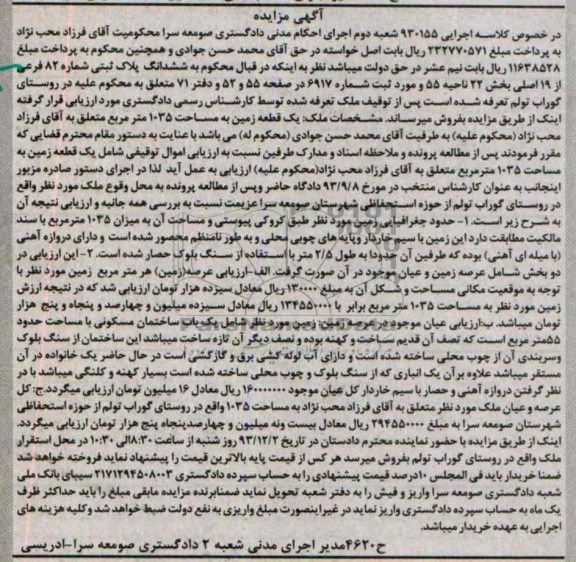 آگهی مزایده
در خصوص کلاسه اجرایی ۹۳۰۱۵۵ شعبه دوم اجرای احکام مدنی دادگستری صومعه سرا محکومیت آقای فرزاد محب نژاد
به پرداخت مبلغ ۲۳۲۷۷۰۵۷۱ ریال بابت اصل خواسته در حق آقای محمد حسن جوادی و همچنین محکوم به پرداخت مبلغ
۱۱۶۳۸۵۲۸ ریال بابت نیم عشر در حق دولت میباشد نظر به اینکه در قبال محکوم به ششدانگ پلاک ثبتی شماره ۸۲ فرعی
از ۱۹ اصلی بخش ۲۲ ناحیه ۵۵ و مورد ثبت شماره ۶۹۱۷ در صفحه ۵۵ و ۵۲ و دفتر ۷۱ متعلق به محکوم علیه در روستای
گوراب تولم تعرفه شده است پس از توقیف ملک تعرفه شده توسط کارشناس رسمی دادگستری مورد ارزیابی قرار گرفته
اینک از طریق مزایده بفروش میرساند. مشخصات ملک: یک قطعه زمین به مساحت ۱۰۳۵ متر مربع متعلق به آقای فرزاد
محب نژاد (محکوم علیه) به طرفیت آقای محمد حسن جوادی (محکوم له) می باشد با عنایت به دستور مقام محترم قضایی که
مقرر فرمودند پس از مطالعه پرونده و ملاحظه اسناد و مدارک طرفین نسبت به ارزیابی اموال توقیفی شامل یک قطعه زمین به
مساحت ۱۰۳۵ مترمربع متعلق به آقای فرزاد محب نژاد(محکوم علیه) ارزیابی به عمل آید لذا در اجرای دستور صادره مزبور
اینجانب به عنوان کارشناس منتخب در مورخ ۹۳/۹/۸ دادگاه حاضر و پس از مطالعه پرونده به محل وقوع ملک مورد نظر واقع
در روستای گوراب تولم از حوزه استحفاظی شهرستان صومعه سرا عزیمت نسبت به بررسی همه جانبه و ارزیابی نتیجه آن
به شرح زیر است. ۱- حدود جغرافیایی زمین مورد نظر طبق کروکی پیوستی و مساحت آن به میزان ۱۰۳۵ مترمربع با سند
مالکیت مطابقت دارد این زمین با سیم خاردار و پایه های چوبی محلی و به طور نامنظم محصور شده است و دارای دروازه آهنی
(با میله ای آهنی) بوده که طرفین آن حدودا به طول ۲/۵ متر با استفاده از سنگ بلوک حصار شده است. ۲- این ارزیابی در
دو بخش شامل عرصه زمین و عیان موجود در آن صورت گرفت. الف-ارزیابی عرصه(زمین) هر متر مربع زمین مورد نظر با
توجه به موقعیت مکانی مساحت و شکل آن به مبلغ ۱۳۰۰۰۰ ریال معادل سیزده هزار تومان ارزیابی شد که در نتیجه ارزش
زمین مورد نظر به مساحت ۱۰۳۵ متر مربع برابر با ۱۳۴۵۵۰۰۰۰ ریال معادل سیزده میلیون و چهارصد و پنجاه و پنج هزار
تومان میباشد. ب:ارزیابی عیان موجود در عرصه زمین: زمین مورد نظر شامل یک باب ساختمان مسکونی با مساحت حدود
۵۵متر مربع است که نصف آن قدیم ساخت و کهنه بوده و نصف دیگر آن تازه ساخت میباشد این ساختمان از سنگ بلوک
وسربندی آن از چوب محلی ساخته شده است و دارای آب لوله کشی برق و گازکشی است در حال حاضر یک خانواده در آن
مستقر میباشد علاوه بر آن یک انباری که از سنگ بلوک و چوب محلی ساخته شده است بسیار کهنه و کلنگی میباشد با در
نظر گرفتن دروازه آهنی و حصار با سیم خاردار کل عیان موجود ۱۶۰۰۰۰۰۰۰ ریال معادل ۱۶ میلیون تومان ارزیابی میگردد.ج: کل
عرصه و عیان ملک مورد نظر متعلق به آقای فرزاد محب نژاد به مساحت ۱۰۳۵ واقع در روستای گوراب تولم از حوزه استحفاظی
شهرستان صومعه سرا به مبلغ ۲۹۴۵۵۰۰۰۰ ریال معادل بیست ونه میلیون و چهارصدپنجاه پنج هزار تومان ارزیابی میگردد.
اینک از طریق مزایده با حضور نماینده محترم دادستان در تاریخ ۹۳/۱۲/۲ روز شنبه از ساعت ۸:۳۰الی ۱۰:۳۰ در محل استقرار
ملک واقع در روستای گوراب تولم بفروش میرسد هر کس از قیمت پایه بالاترین قیمت را پیشنهاد نماید فروخته خواهد شد
ضمنا خریدار باید فی المجلس ۱۰درصد قیمت پیشنهادی را به حساب سپرده دادگستری ۲۱۷۱۲۹۴۵۰۸۰۰۳ سیبای بانک ملی
شعبه دادگستری صومعه سرا واریز و فیش را به دفتر شعبه تحویل نماید ضمنابرنده مزایده مابقی مبلغ را باید حداکثر ظرف
یک ماه به حساب سپرده دادگستری واریز نماید در غیراینصورت مبلغ واریزی به نفع دولت ضبط خواهد شد وکلیه هزینه های
اجرایی به عهده خریدار میباشد.
ح۴۶۲۰مدیر اجرای مدنی شعبه ۲ دادگستری صومعه سرا-ادریسی